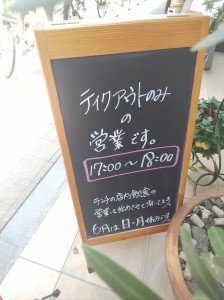 テイクアウトのみ
の
営業です。
17:00〜18:00
ランチの店内飲食の
営業は始めさせて頂いてます
6月は日・月休みです